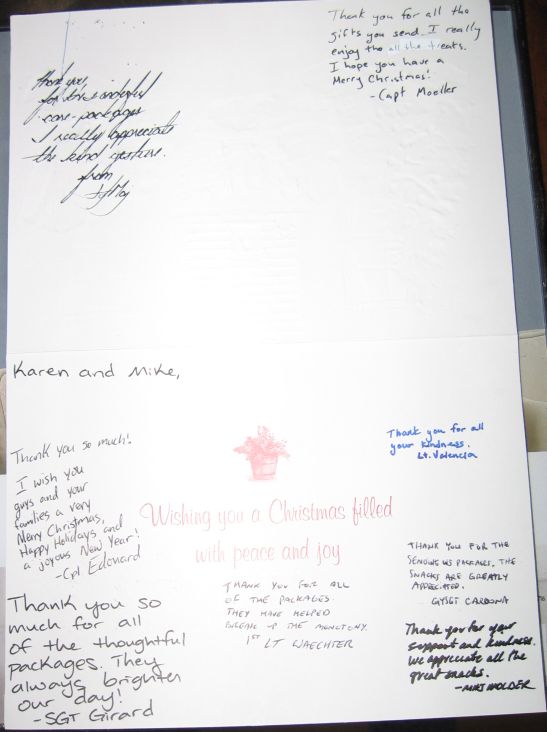 Thank you for all the
gifts you send. I really
enjoy the all the treats.
I hope you have a
Merry Christmas!
-Capt Moeller
thank you,
for the wonderful
care-packages
I really appreciate
the kind gesture.
from
Karen and Mike,
Thank you so much!
I wish you
guys and your
families a very
Merry Christmas,
Happy Holidays and
a joyous New Year!
-Cpl Edouard
Thank you for all
your kindness.
Lt. Valencia
Wishing you a Christmas filled
with peace and joy
THANK YOU FOR ALL
OF THE PACKAGES.
THEY HAVE HELPED
BREAK UP THE MONOTONY.
1ST LT WAECHTER
THANK YOU FOR THE
SENDING US PACKAGES. THE
SNACKS ARE GREATLY
APPRECIATED.
GYSGT CARDONA
Thank you so
much for all
of the thoughtful
packages. They
always brighten
our day!
-SGT Girard
Thank you for your
support and kindness.
We appreciate all the
great snacks.
-MAJ HOLDER